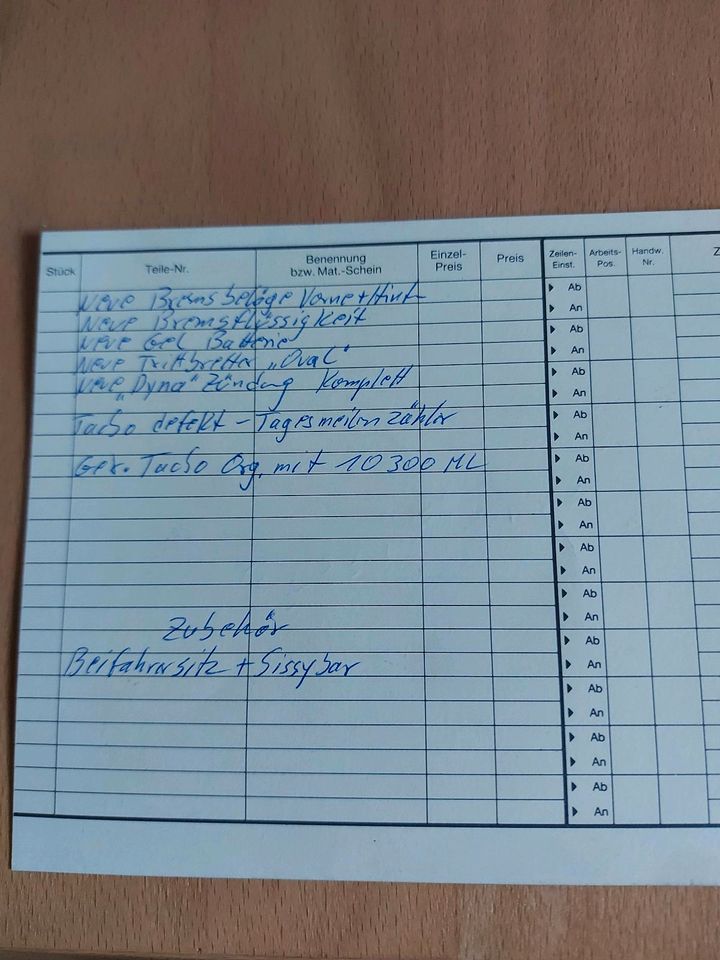 Stück Teile-Nr. Benennung bzw. Mat.-Schein Einzel-Preis Preis Zeilen-Einst. Arbeits-Pos. Handw. Nr. Z
Neue Bremsbeläge Vorne + Hint
Neue Bremsflüssigkeit
Neue Gel Batterie
Neue Trittbretter „Oval"
Neue „Dyna" Zündung Komplett
Tacho defekt - Tagesmeilenzähler
Gebr. Tacho Org. mit 10300 ML
Zubehör
Beifahrersitz + Sissybar
Ab
An
Ab
An
Ab
An
Ab
An
Ab
An
Ab
An
Ab
An
Ab
An
Ab
An
Ab
An
Ab
An
Ab
An